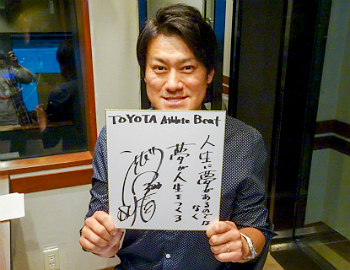 TOYOTA Athlete Beat
人生に夢があるのでは
なく
夢が人生をつくる